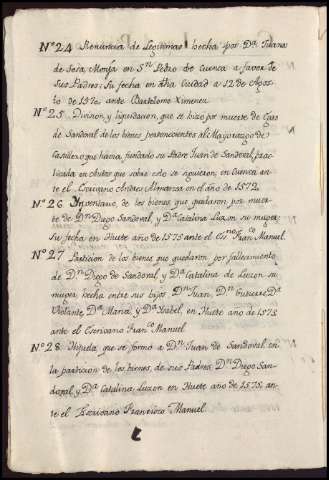 Nº 24 Renuncia de Legitimas hecha por Dª Juana
de Sera, Monja en Sn Pedro de Cuenca a favor de
sus Padres; su fecha en dha Ciudad a 12 de Agos
to de 1570. ante Bartolome Ximenez
Nº 25 Division, y liquidacion, que se hizo por muerte de
de Sandoval de los bienes pertenecientes al Mayorazgo de
que havia fundado su Padre Juan de Sandoval, prac
ticada en Autos que sobre esto se siguieron, en Cuenca an
te el Escrivano Andres Almarza en el año de 1572.
Nº 26 Inventario de los bienes que quedaron por muer
te de Dn Diego Sandoval, y Dª Catalina Luzon su muger
Su fecha en Huete año de 1575 ante el Esno Franco Manuel.
Nº 27 Particion de los bienes que quedaron por fallecimiento
de Dn Diego de Sandoval, y Dª Catalina de Luzon su
muger, hecha entre sus hijos Dn Juan, Dn Gutierre, Dª
Violante, Dª Maria, y Dª Ysabel, en Huete año de 1575
ante el Escrivano Franco Manuel
Nº 28 Hijuela que se formó a Dn Juan de Sandoval en
la particion de los bienes, de sus Padres Dn Diego San
doval y Dª Catalina Luzon en Huete año de 1575. an
te el Escrivano Francisco Manuel